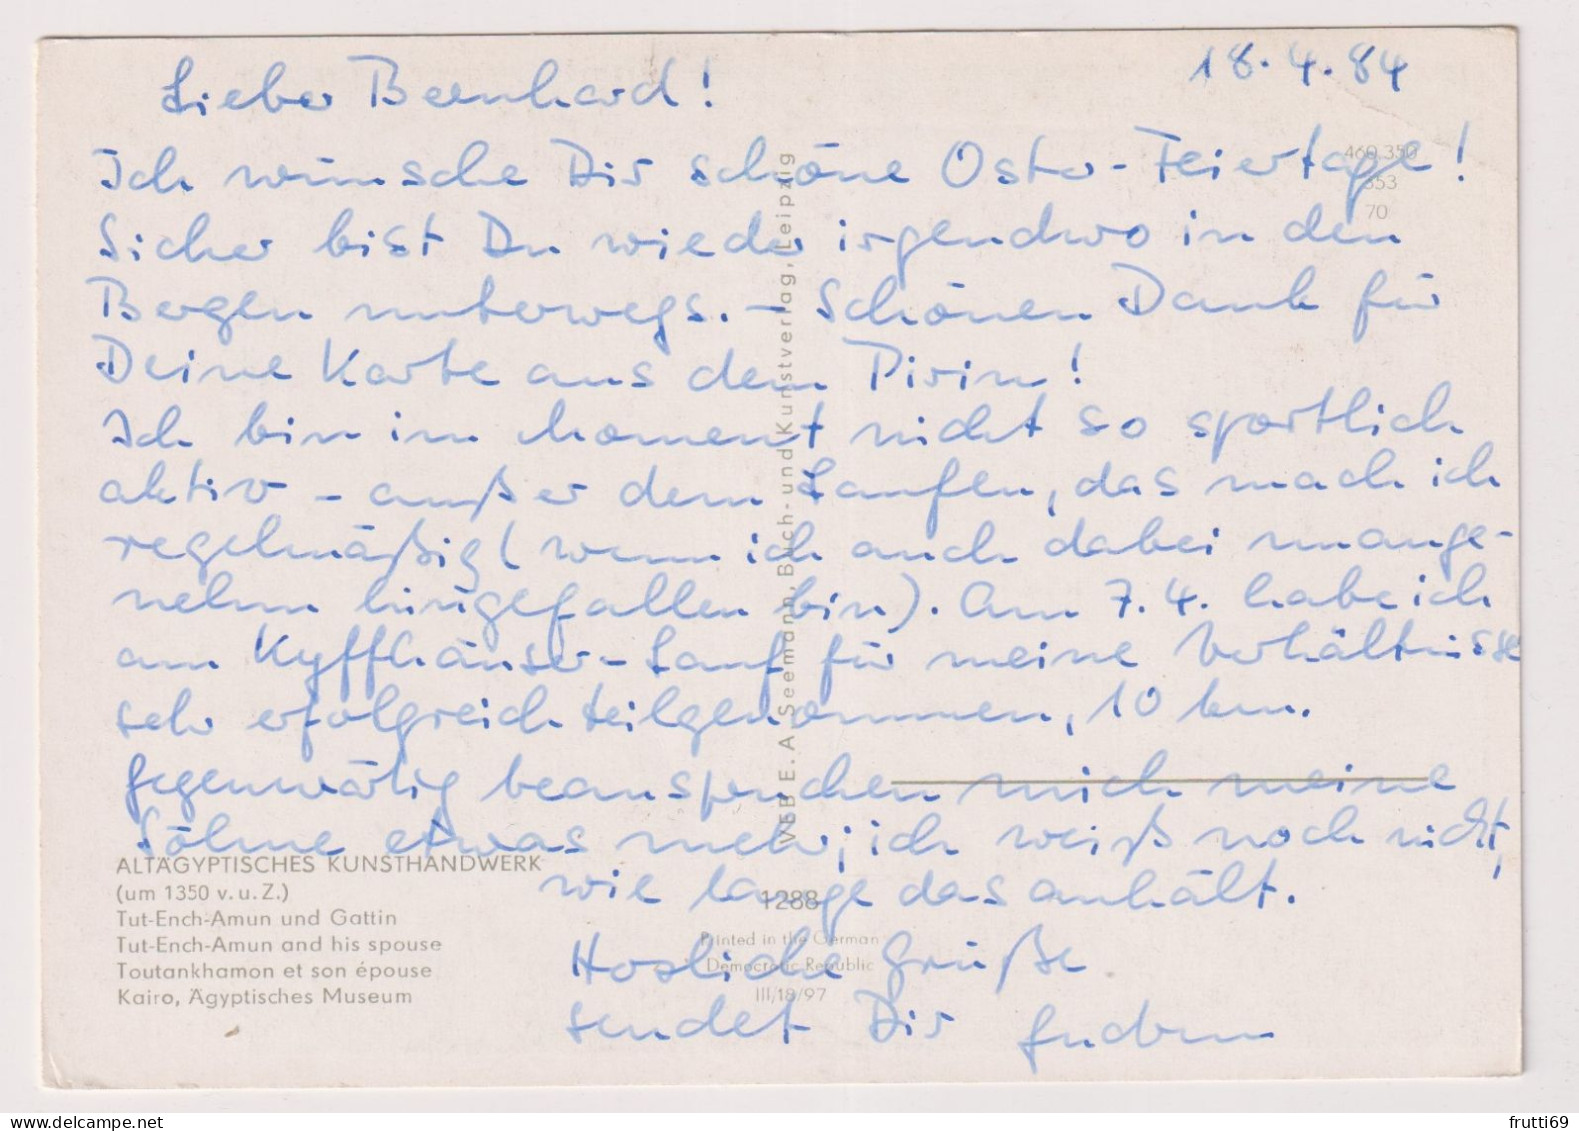 18.4.84
Lieber Bernhard!
Ich wünsche Dir schöne Oster-Feiertage!
Sicher bist Du wieder irgendwo in den
Bergen unterwegs. – Schönen Dank für
Deine Karte aus dem Pirin!
Ich bin im Moment nicht so sportlich
aktiv – außer dem Laufen, das mach ich
regelmäßig (wenn ich auch dabei unange-
nehm hingefallen bin). Am 7.4. habe ich
am Kyffhäuser-Lauf für meine Verhältnisse
sehr erfolgreich teilgenommen, 10 km.
Gegenwärtig beanspruchen mich meine
Söhne etwas mehr; ich weiß noch nicht,
wie lange das anhält.
Herzliche Grüße
sendet Dir Gudrun
460 350
353
70
VEB E. A. Seemann, Buch- und Kunstverlag, Leipzig
ALTÄGYPTISCHES KUNSTHANDWERK
(um 1350 v. u. Z.)
Tut-Ench-Amun und Gattin
Tut-Ench-Amun and his spouse
Toutankhamon et son épouse
Kairo, Ägyptisches Museum
1288
Printed in the German
Democratic Republic
III/18/97
www.delcampe.net
frutti69